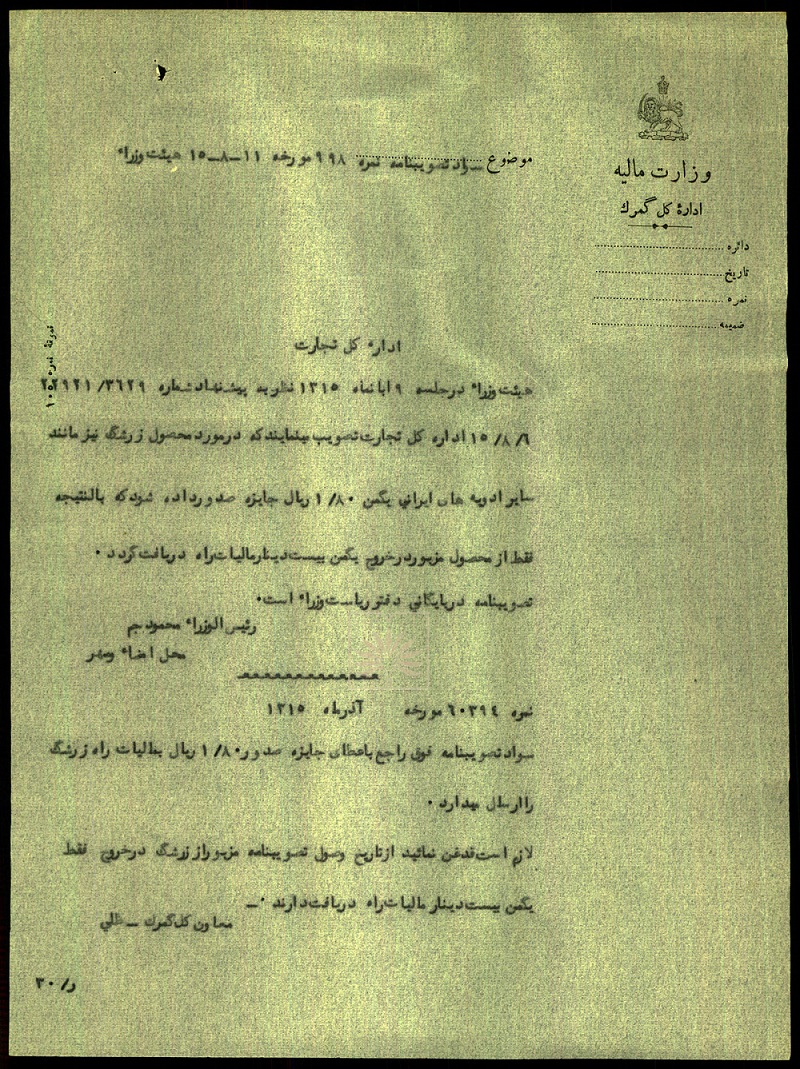 وزارت مالیه
ادارهٔ کل گمرك
دائره
تاریخ
نمره
ضمیمه
موضوع سواد تصویبنامه نمره ۹۹۸ مورخه ۱۱-۸-۱۵ هیئت وزراء
نمونهٔ نمره ۱۰۵۲
ادارهٔ کل تجارت
هیئت وزراء در جلسه ۹ آبانماه ۱۳۱۵ نظر به پیشنهاد شماره ۳۶۲۹/۲۲۹۲۱
۱۵/۸/۶ اداره کل تجارت تصویب مینمایند که در مورد محصول زرشگ نیز مانند
سایر ادویه های ایرانی یکمن ۱/۸۰ ریال جایزه صدور داده شود که بالنتیجه
فقط از محصول مزبور در خروج یکمن بیست دینار مالیات راه دریافت گردد .
تصویبنامه در بایگانی دفتر ریاست وزراء است.
رئیس الوزراء محمود جم
محل امضاء ومهر
نمره ۶۰۳۹٤ مورخه آذرماه ۱۳۱۵
سواد تصویبنامه فوق راجع باعطای جایزه صدور ۱/۸۰ ریال بمالیات راه زرشگ
را ارسال میدارد .
لازم است قدغن نمائید از تاریخ وصول تصویبنامه مزبور از زرشگ در خروج فقط
یکمن بیست دینار مالیات راه دریافت دارند .ـ
معاون کل گمرك ـ
ر/ ۳۰